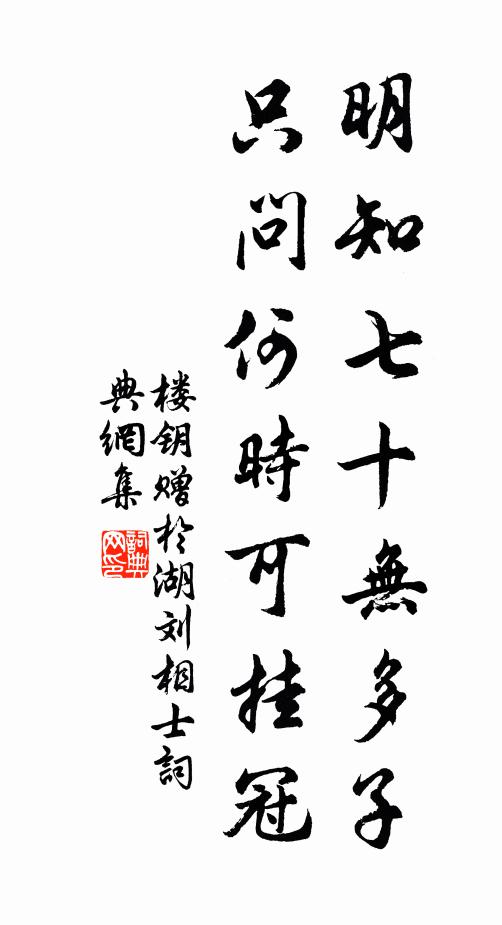 明知七十無多子
只問何時可挂冠
楼钥赠於湖刘相士詞
典網集
詞典
网印